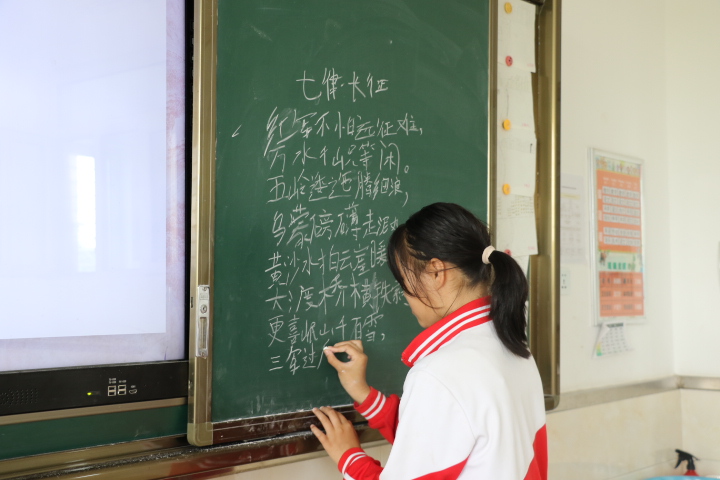 七律·长征
红军不怕远征难,
万水千山只等闲。
五岭逶迤腾细浪,
乌蒙磅礴走泥
黄沙水拍云崖暖
大渡桥横铁
更喜岷山千百雪,
三军过